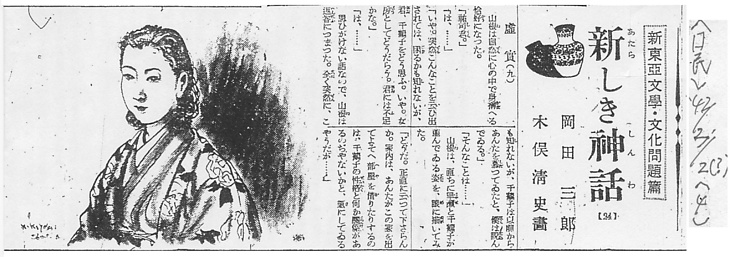 新東亞文學・文化問題篇
新しき神話
あたら
しんわ
【34】
岡田三郎
木俣清史畫
虛實(九)
は自然に心の中で身構へる
恰好になつた。
「は。」
「いや、突然こんなことを云ひ出
されては、困るかも知れないが、
君、千鶴子をどう思ふ。いや、女
房としてどうだらう。君には不足
かな。」
「は、……」
思ひがけない話なので、山根は
返答につまつた。全く突然に、こ
も知れないが、千鶴子は以前から
あんたを慕つてゐたと、僕は睨ん
でゐる。」
「そんなことは……」
山根は、直ちに と千鶴子が
んでゐる姿を、眼に描いてみ
た。
「どうだ。正直に云つて下さらん
か。 内は、あんたがこの家を出
てよそへ部屋を借りたりするの
は、千鶴子の性格と何か關係があ
るのぢやないかと、氣にしてゐる
やうだが……」